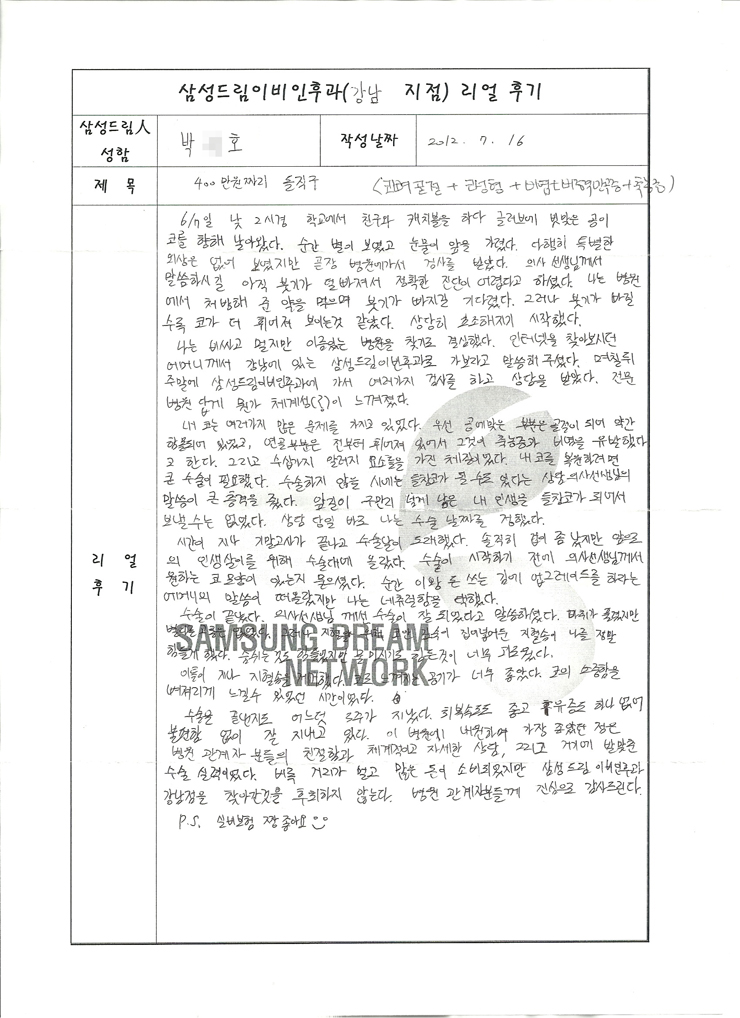 삼성드림이비인후과(강남 지점) 리얼 후기
삼성드림人 성함
박 호
작성날짜
2012. 7. 16
제 목
400만원짜리 돌직구 (코뼈골절 + 코성형 + 비염+비중격만곡증+축농증)
리 얼 후 기
6/7일 낮 2시경 학교에서 친구와 캐치볼을 하다 글러브에 빗맞은 공이
코를 향해 날아왔다. 순간 별이 보였고 눈물이 앞을 가렸다. 다행히 특별한
외상은 없어 보였지만 곧장 병원에가서 검사를 받았다. 의사 선생님께서
말씀하시길 아직 붓기가 덜빠져서 정확한 진단이 어렵다고 하셨다. 나는 병원
에서 처방해 준 약을 먹으며 붓기가 빠지길 기다렸다. 그러나 붓기가 빠질
수록 코가 더 휘어져 보이는것 같았다. 상당히 초조해지기 시작했다.
나는 비싸고 멀지만 이름있는 병원을 찾기로 결심했다. 인터넷을 찾아보시던
어머니께서 강남에 있는 삼성드림이비인후과로 가보라고 말씀해 주셨다. 며칠뒤
주말에 삼성드림이비인후과에 가서 여러가지 검사를 하고 상담을 받았다. 전문
병원 답게 뭔가 체계섬(?)이 느껴졌다.
내 코는 여러가지 많은 문제를 가지고 있었다. 우선 공에맞은 부분은 골절이 되어 약간
함몰되어 있었고, 연골부분은 전부터 휘어져 있어서 그것이 축농증과 비염을 유발했다
고 한다. 그리고 수십가지 알러지 요소들을 가진 체질이었다. 내 코를 복원하려면
큰 수술이 필요했다. 수술하지 않을 시에는 들창코가 될 수도 있다는 상담 의사선생님의
말씀이 큰 충격을 줬다. 앞길이 구만리 넘게 남은 내 인생을 들창코가 되어서
보낼수는 없었다. 상담 당일 바로 나는 수술 날짜를 정했다.
시간이 지나 기말고사가 끝나고 수술날이 도래했다. 솔직히 겁이 좀 났지만 앞으로
의 인생살이를 위해 수술대에 올랐다. 수술이 시작하기 전에 의사선생님께서
원하는 코 모양이 있는지 물으셨다. 순간 이왕 돈 쓰는 김에 업그레이드를 하라는
어머니의 말씀이 떠올랐지만 나는 네츄럴함을 택했다.
수술이 끝났다. 의사선생님 께서 수술이 잘 되었다고 말씀하셨다. 마취가 풀렸지만
집어넣어둔 지혈솜이 나를 정말
힘들게 했다. 숨쉬는것도 힘들었지만 것이 너무 괴로웠다.
이틀이 지나 지혈솜을 제거했다. 코로 느껴지는 공기가 너무 좋았다. 코의 소중함을
뼈저리게 느낄수 있었던 시간이었다.
수술을 끝낸지도 어느덧 3주가 지났다. 회복속도도 좋고 휴유증도 하나 없이
불편함 없이 잘 지내고 있다. 이 병원에 내원하며 가장 좋았던 점은
병원 관계자 분들의 친절함과 체계적이고 자세한 상담, 그리고 거기에 발맞춘
수술 실력이었다. 비록 거리가 멀고 많은 돈이 소비되었지만 삼성드림 이비인후과
강남점을 찾아간것을 후회하지 않는다. 병원 관계자분들께 진심으로 감사드린다.
P.S. 실비보험 짱 좋아요
SAMSUNG DREAM
NETWORK